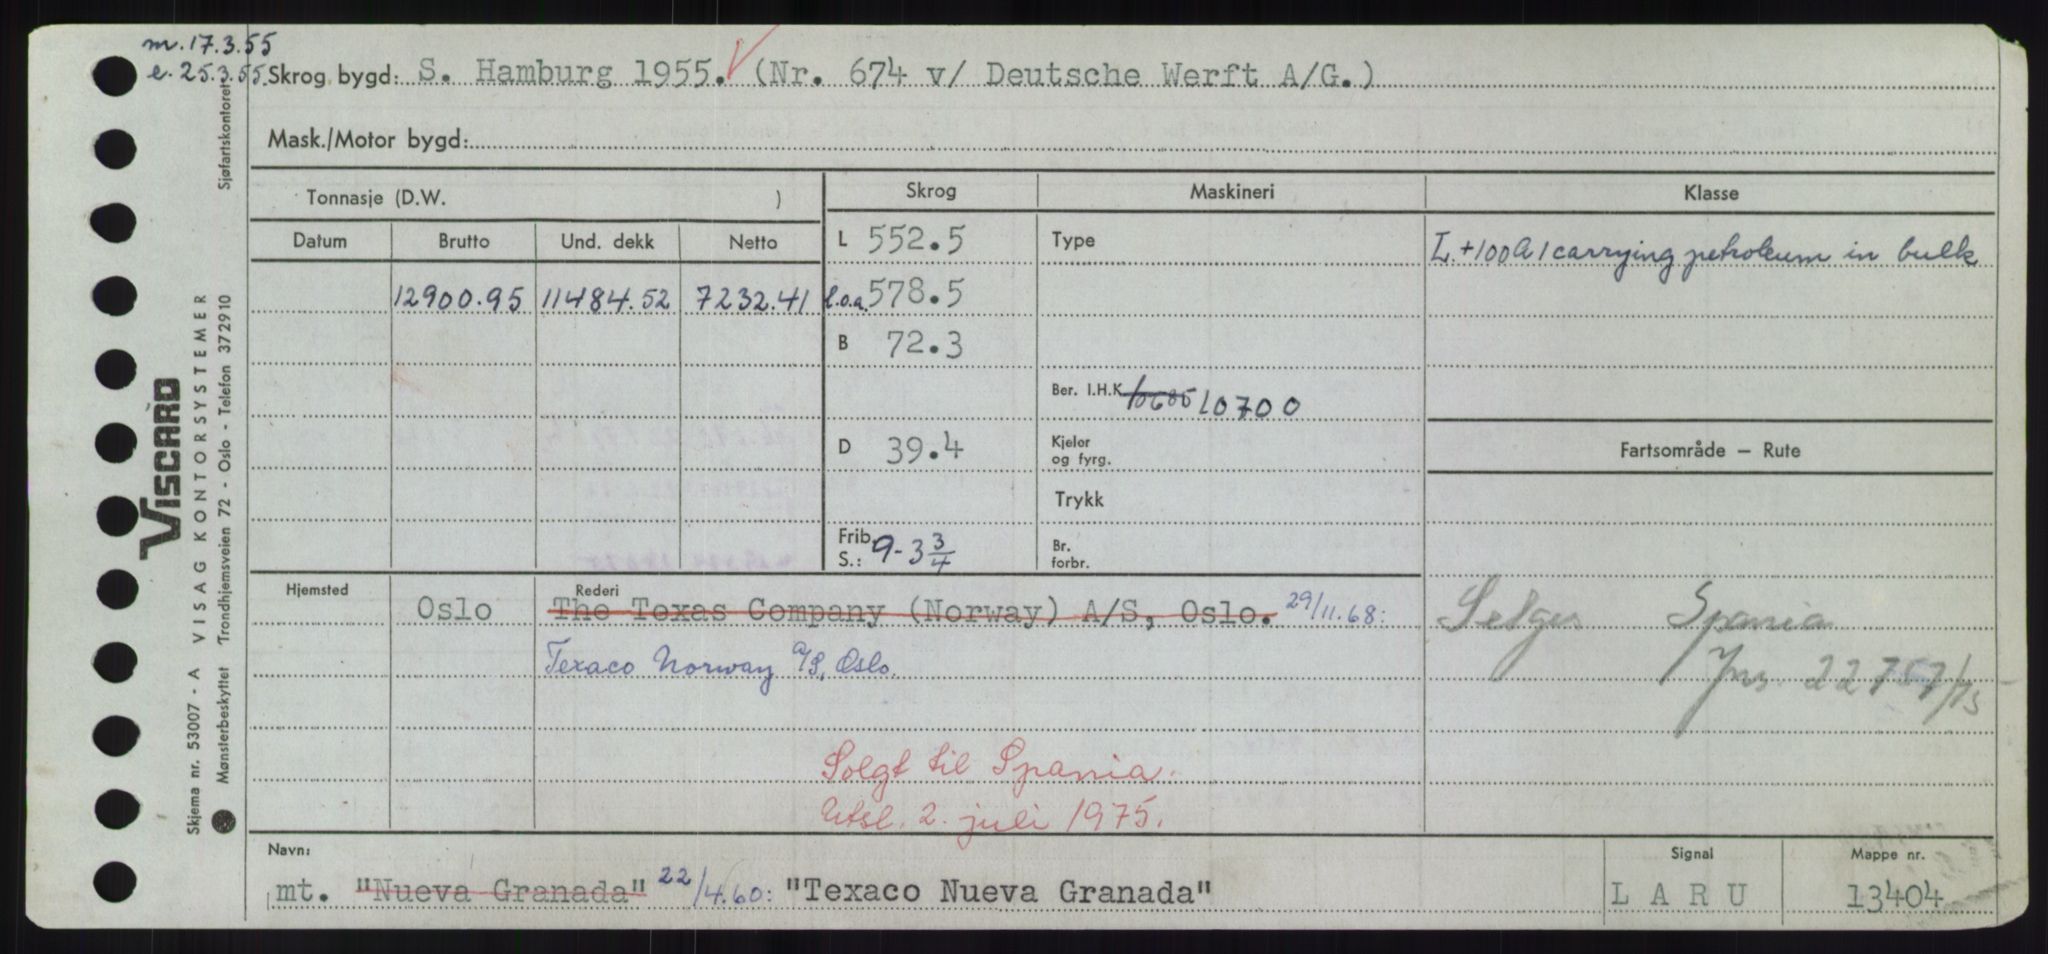 m. 17.3.55
e. 25.3.55 Skrog bygd: S. Hamburg 1955. (Nr. 674 v/ Deutsche Werft A/G.)
Mask./Motor bygd:
Tonnasje (D.W. )
Skrog Maskineri Klasse
Datum Brutto Und. dekk Netto
L 552.5 Type L. +100A1 carrying petroleum in bulk
12900.95 11484.52 7232.41 l.o.a. 578.5
B 72.3
Ber. I.H.K. 10685 10700
D 39.4 Kjeler og fyrg. Fartsområde – Rute
Trykk
Frib. S.: 9-3 3/4 Br. forbr.
Hjemsted Oslo Rederi The Texas Company (Norway) A/S, Oslo. 29/11.68:
Texaco Norway A/S, Oslo.
Selges Spania
Jns. 22757/75
Solgt til Spania.
Utsl. 2. juli 1975.
Navn: Signal Mappe nr.
mt. "Nueva Granada" 22/4.60: "Texaco Nueva Granada" L A R U 13404
Sjøfartskontoret
VISCARD
VISAG KONTORSYSTEMER
Skjema nr. 53007 - A
Mønsterbeskyttet Trondhjemsveien 72 - Oslo - Telefon 372910